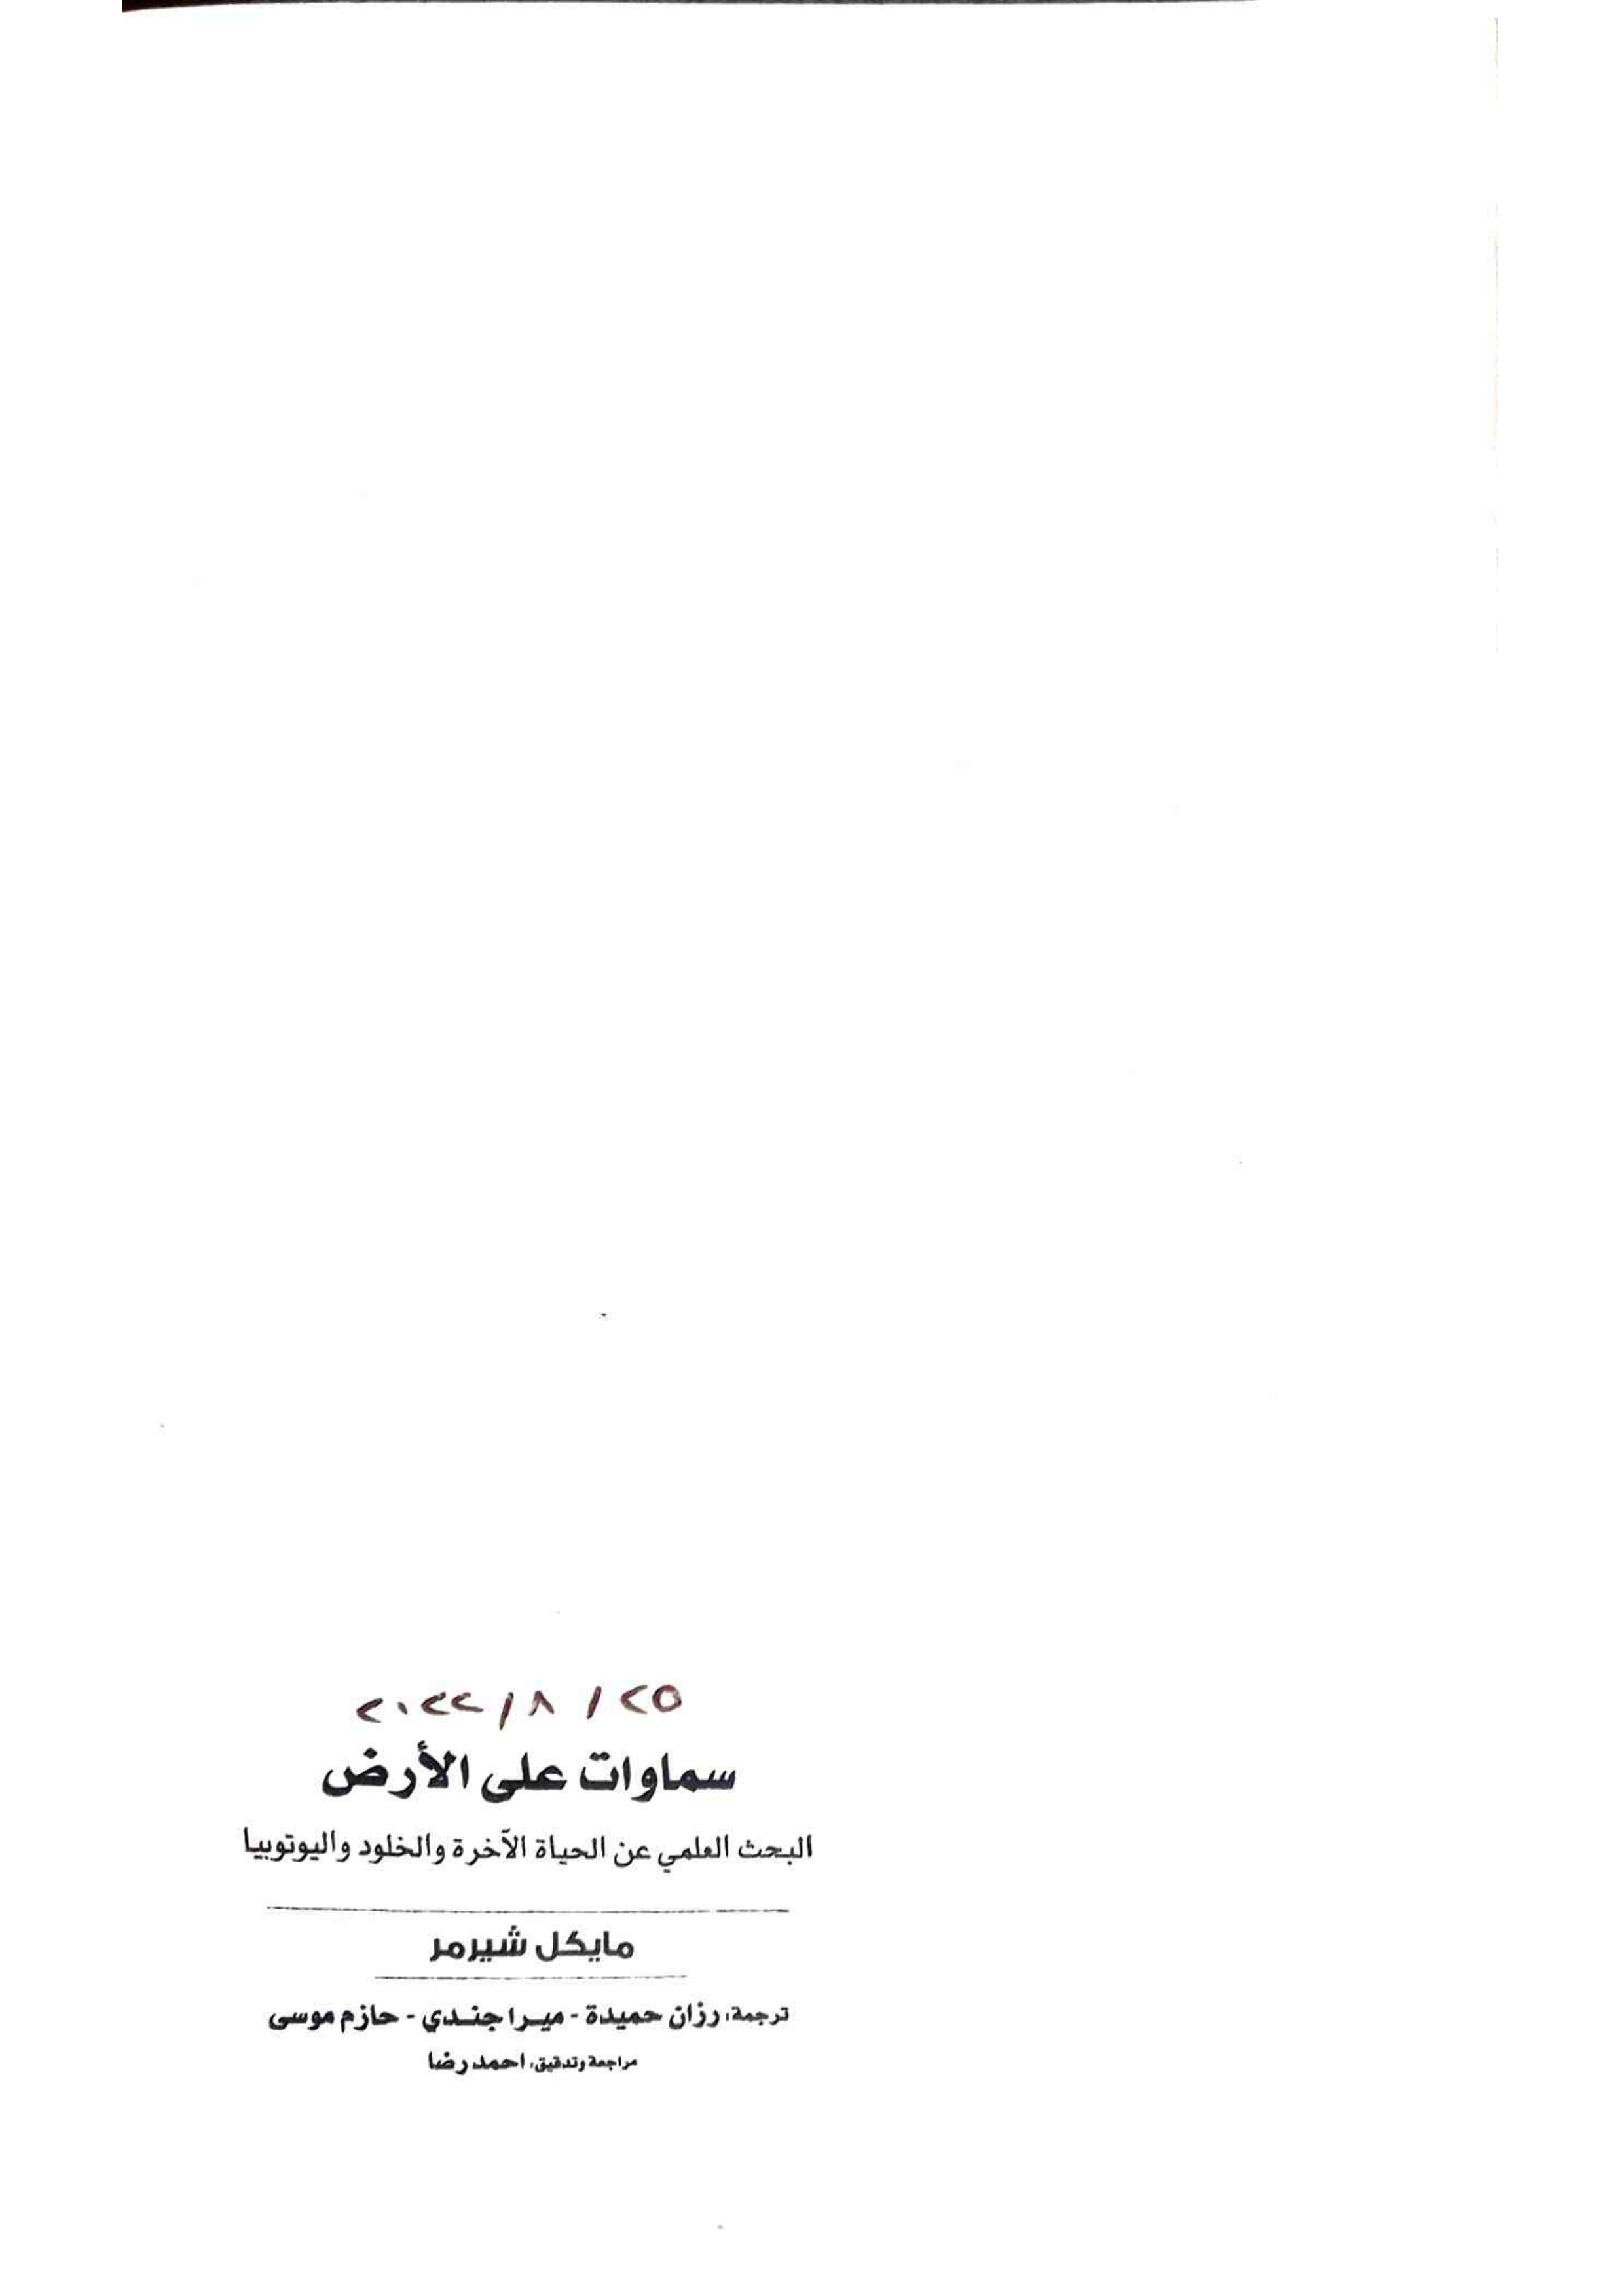 ٢٥ / ٨ / ٢٠٢٢
سماوات على الأرض
البحث العلمي عن الحياة الآخرة والخلود واليوتوبيا
مايكل شيرمر
ترجمة: رزان حميدة - ميرا جندي - حازم موسى
مراجعة وتدقيق: احمد رضا